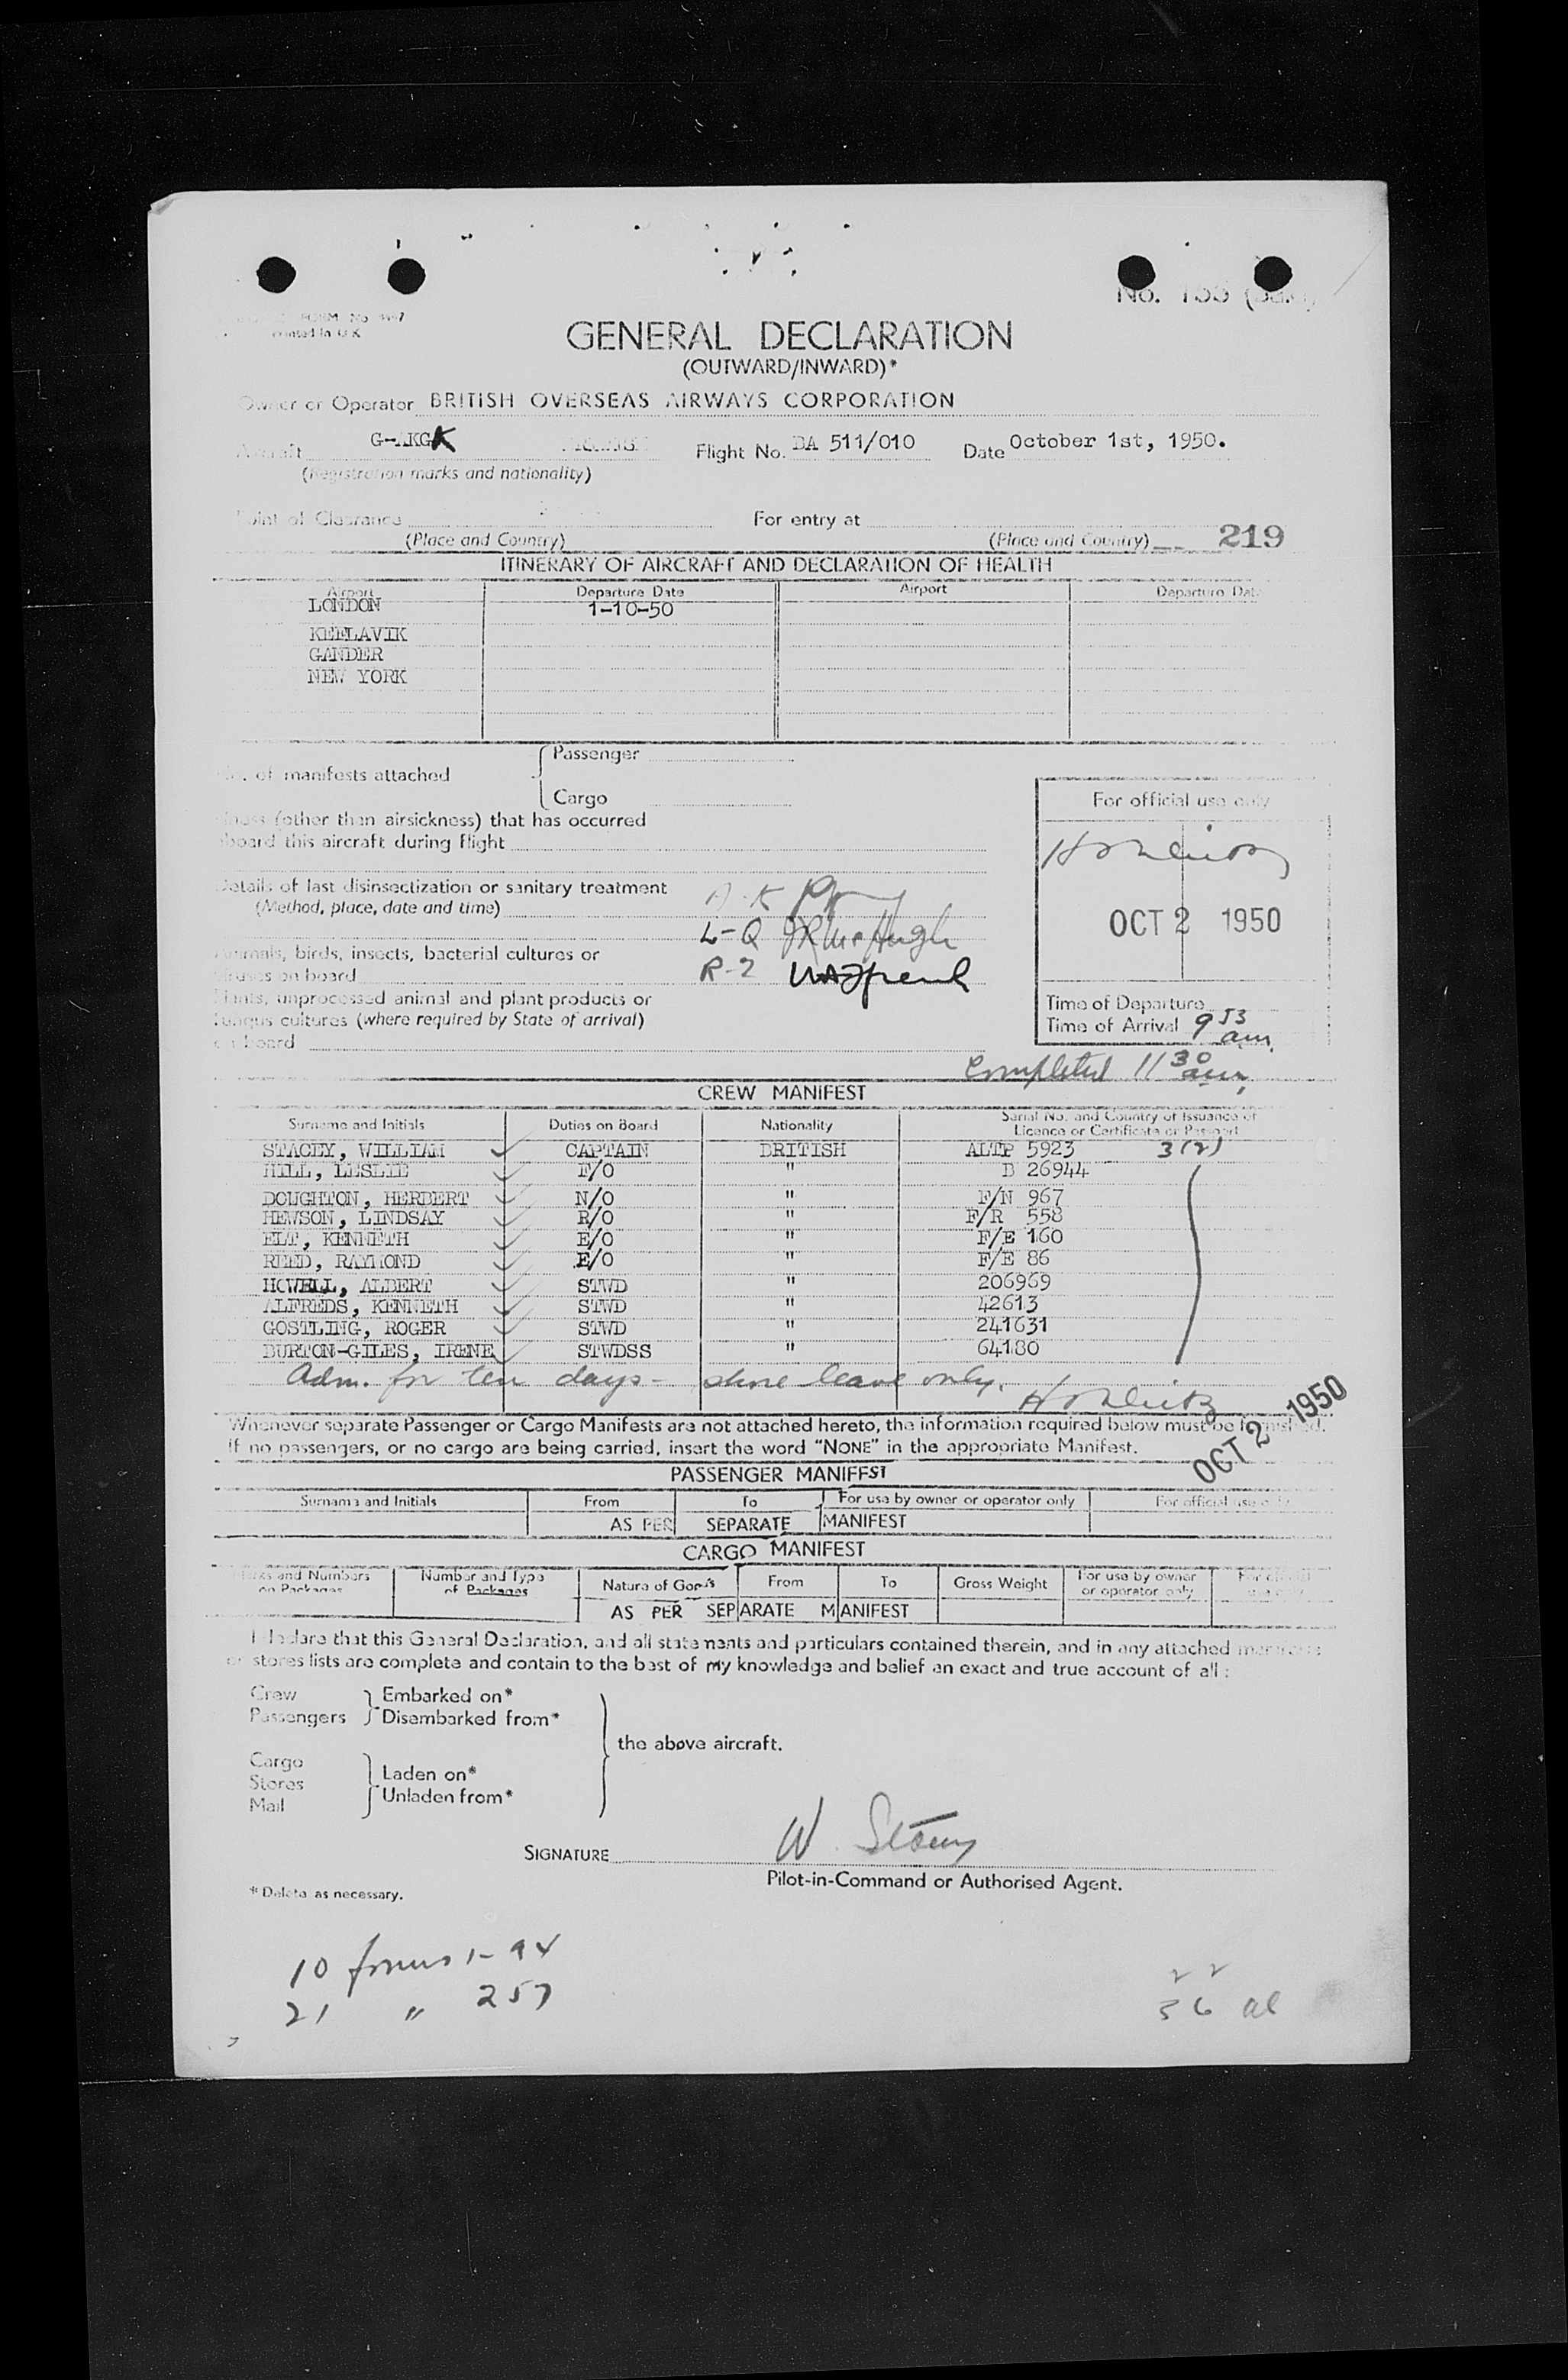 FORM No
Printed in U K
GENERAL DECLARATION
(OUTWARD/INWARD)*
Owner or Operator BRITISH OVERSEAS AIRWAYS CORPORATION
Aircraft G-AKGK Flight No. BA 511/010 Date October 1st, 1950.
(Registration marks and nationality)
Point of Clearance For entry at
(Place and Country) (Place and Country) 219
ITINERARY OF AIRCRAFT AND DECLARATION OF HEALTH
Airport Departure Date Airport Departure Date
LONDON 1-10-50
KEFLAVIK
GANDER
NEW YORK
Passenger
No. of manifests attached
Cargo
For official use only
Illness (other than airsickness) that has occurred
aboard this aircraft during flight
Details of last disinsectization or sanitary treatment
(Method, place, date and time)
L-Q JR McHugh
OCT 2 1950
Animals, birds, insects, bacterial cultures or
viruses on board R-2
Plants, unprocessed animal and plant products or
fungus cultures (where required by State of arrival)
on board
Time of Departure
Time of Arrival 9 53 am.
Completed 11 30 am,
CREW MANIFEST
Surname and Initials Duties on Board Nationality Serial No. and Country of Issuance of Licence or Certificate or Passport
STACEY, WILLIAM CAPTAIN BRITISH ALTP 5923 3(2)
HILL, LESLIE F/O " B 26944
DOUGHTON, HERBERT N/O " F/N 967
HEWSON, LINDSAY R/O " F/R 558
ELT, KENNETH E/O " F/E 160
REED, RAYMOND E/O " F/E 86
HOWELL, ALBERT STWD " 206969
ALFREDS, KENNETH STWD " 42613
GOSTLING, ROGER STWD " 241631
BURTON-GILES, IRENE STWDSS " 64180
Adm. for ten days - shore leave only.
OCT 2 1950
Whenever separate Passenger or Cargo Manifests are not attached hereto, the information required below must be furnished.
If no passengers, or no cargo are being carried, insert the word "NONE" in the appropriate Manifest.
PASSENGER MANIFEST
Surname and Initials From To For use by owner or operator only For official use only
AS PER SEPARATE MANIFEST
CARGO MANIFEST
Marks and Numbers on Packages Number and Type of Packages Nature of Goods From To Gross Weight For use by owner or operator only For official use only
AS PER SEPARATE MANIFEST
I declare that this General Declaration, and all statements and particulars contained therein, and in any attached manifests
or stores lists are complete and contain to the best of my knowledge and belief an exact and true account of all :
Crew Embarked on*
Passengers Disembarked from*
the above aircraft.
Cargo
Stores Laden on*
Mail Unladen from*
SIGNATURE W. Stacey
Pilot-in-Command or Authorised Agent.
* Delete as necessary.
10 forms 1-94
21 " 257
22
36 al